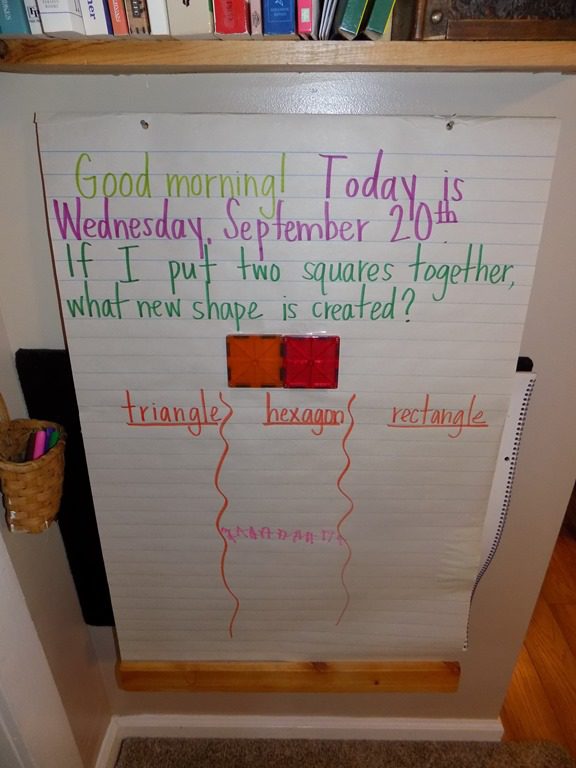 Good morning! Today is
Wednesday, September 20th.
If I put two squares together,
what new shape is created?
triangle hexagon rectangle